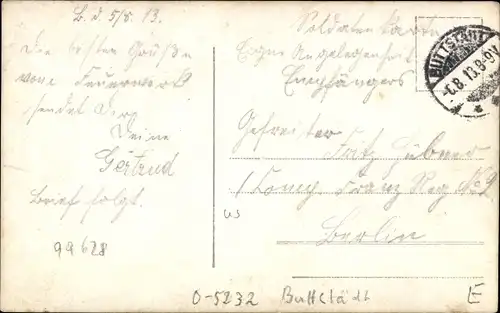 B. d. 5/8. 13.
Die besten Grüße
vom Feuerwerk
sendet Dir
Deine
Gertrud
Brief folgt.
Soldatenkarte
Eigne Angelegenheit
Empfängers
BUTTSTÄDT
-6.8.13.8-9V
Gefreiter
Fritz Hübner
1 Comp. Franz Reg No 2
Berlin
99628
0-5232 Buttstädt
E